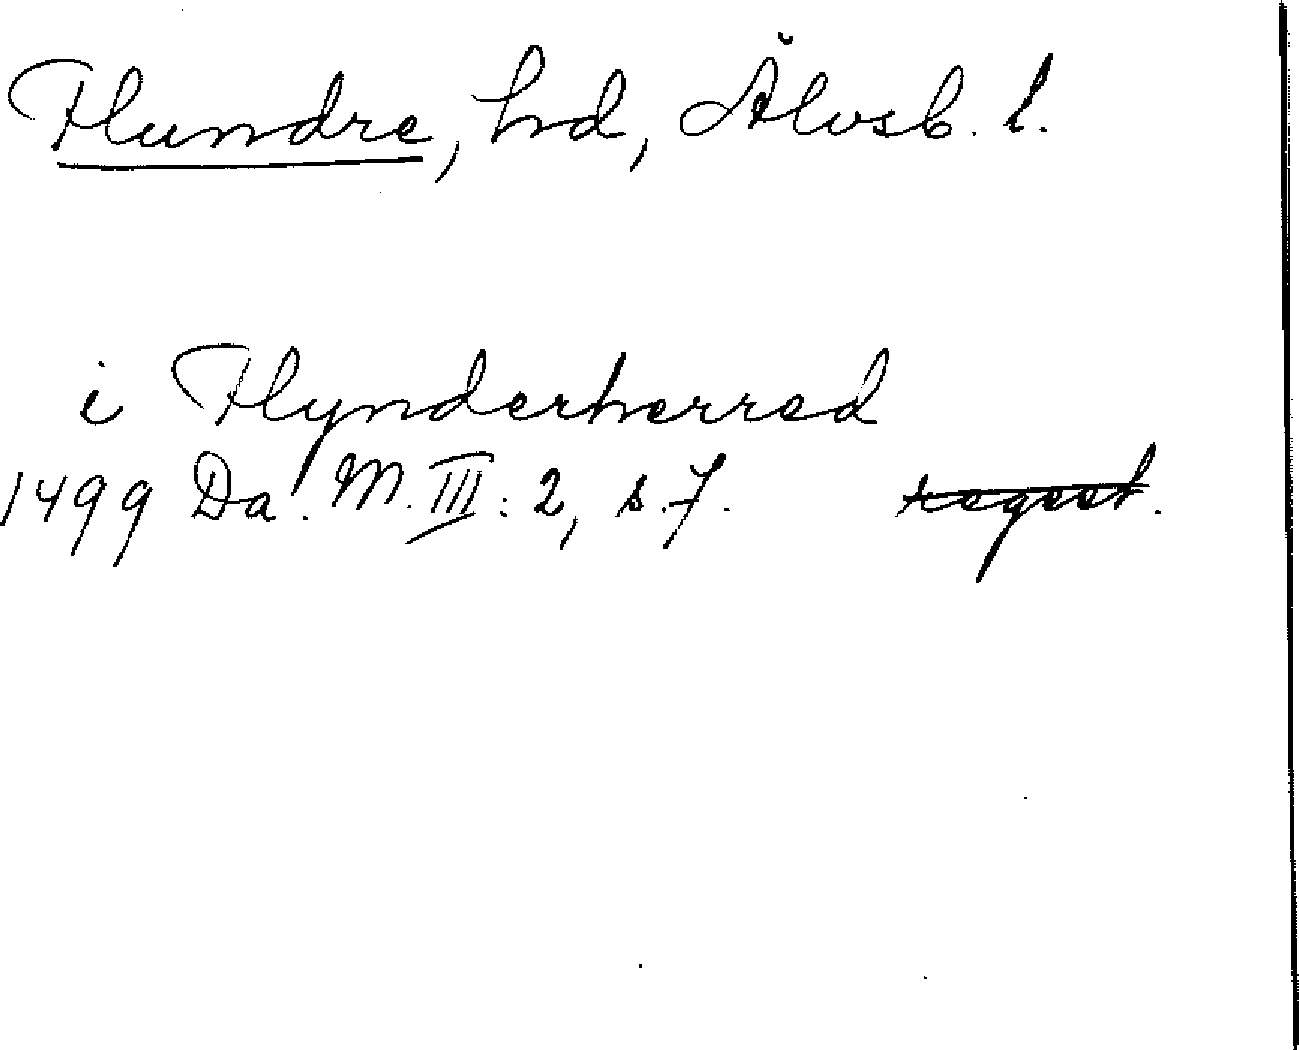 Flundre, hd, Älvsb. l.
i Flynderherred
1499 Da. M. III: 2, s. 7. regest.